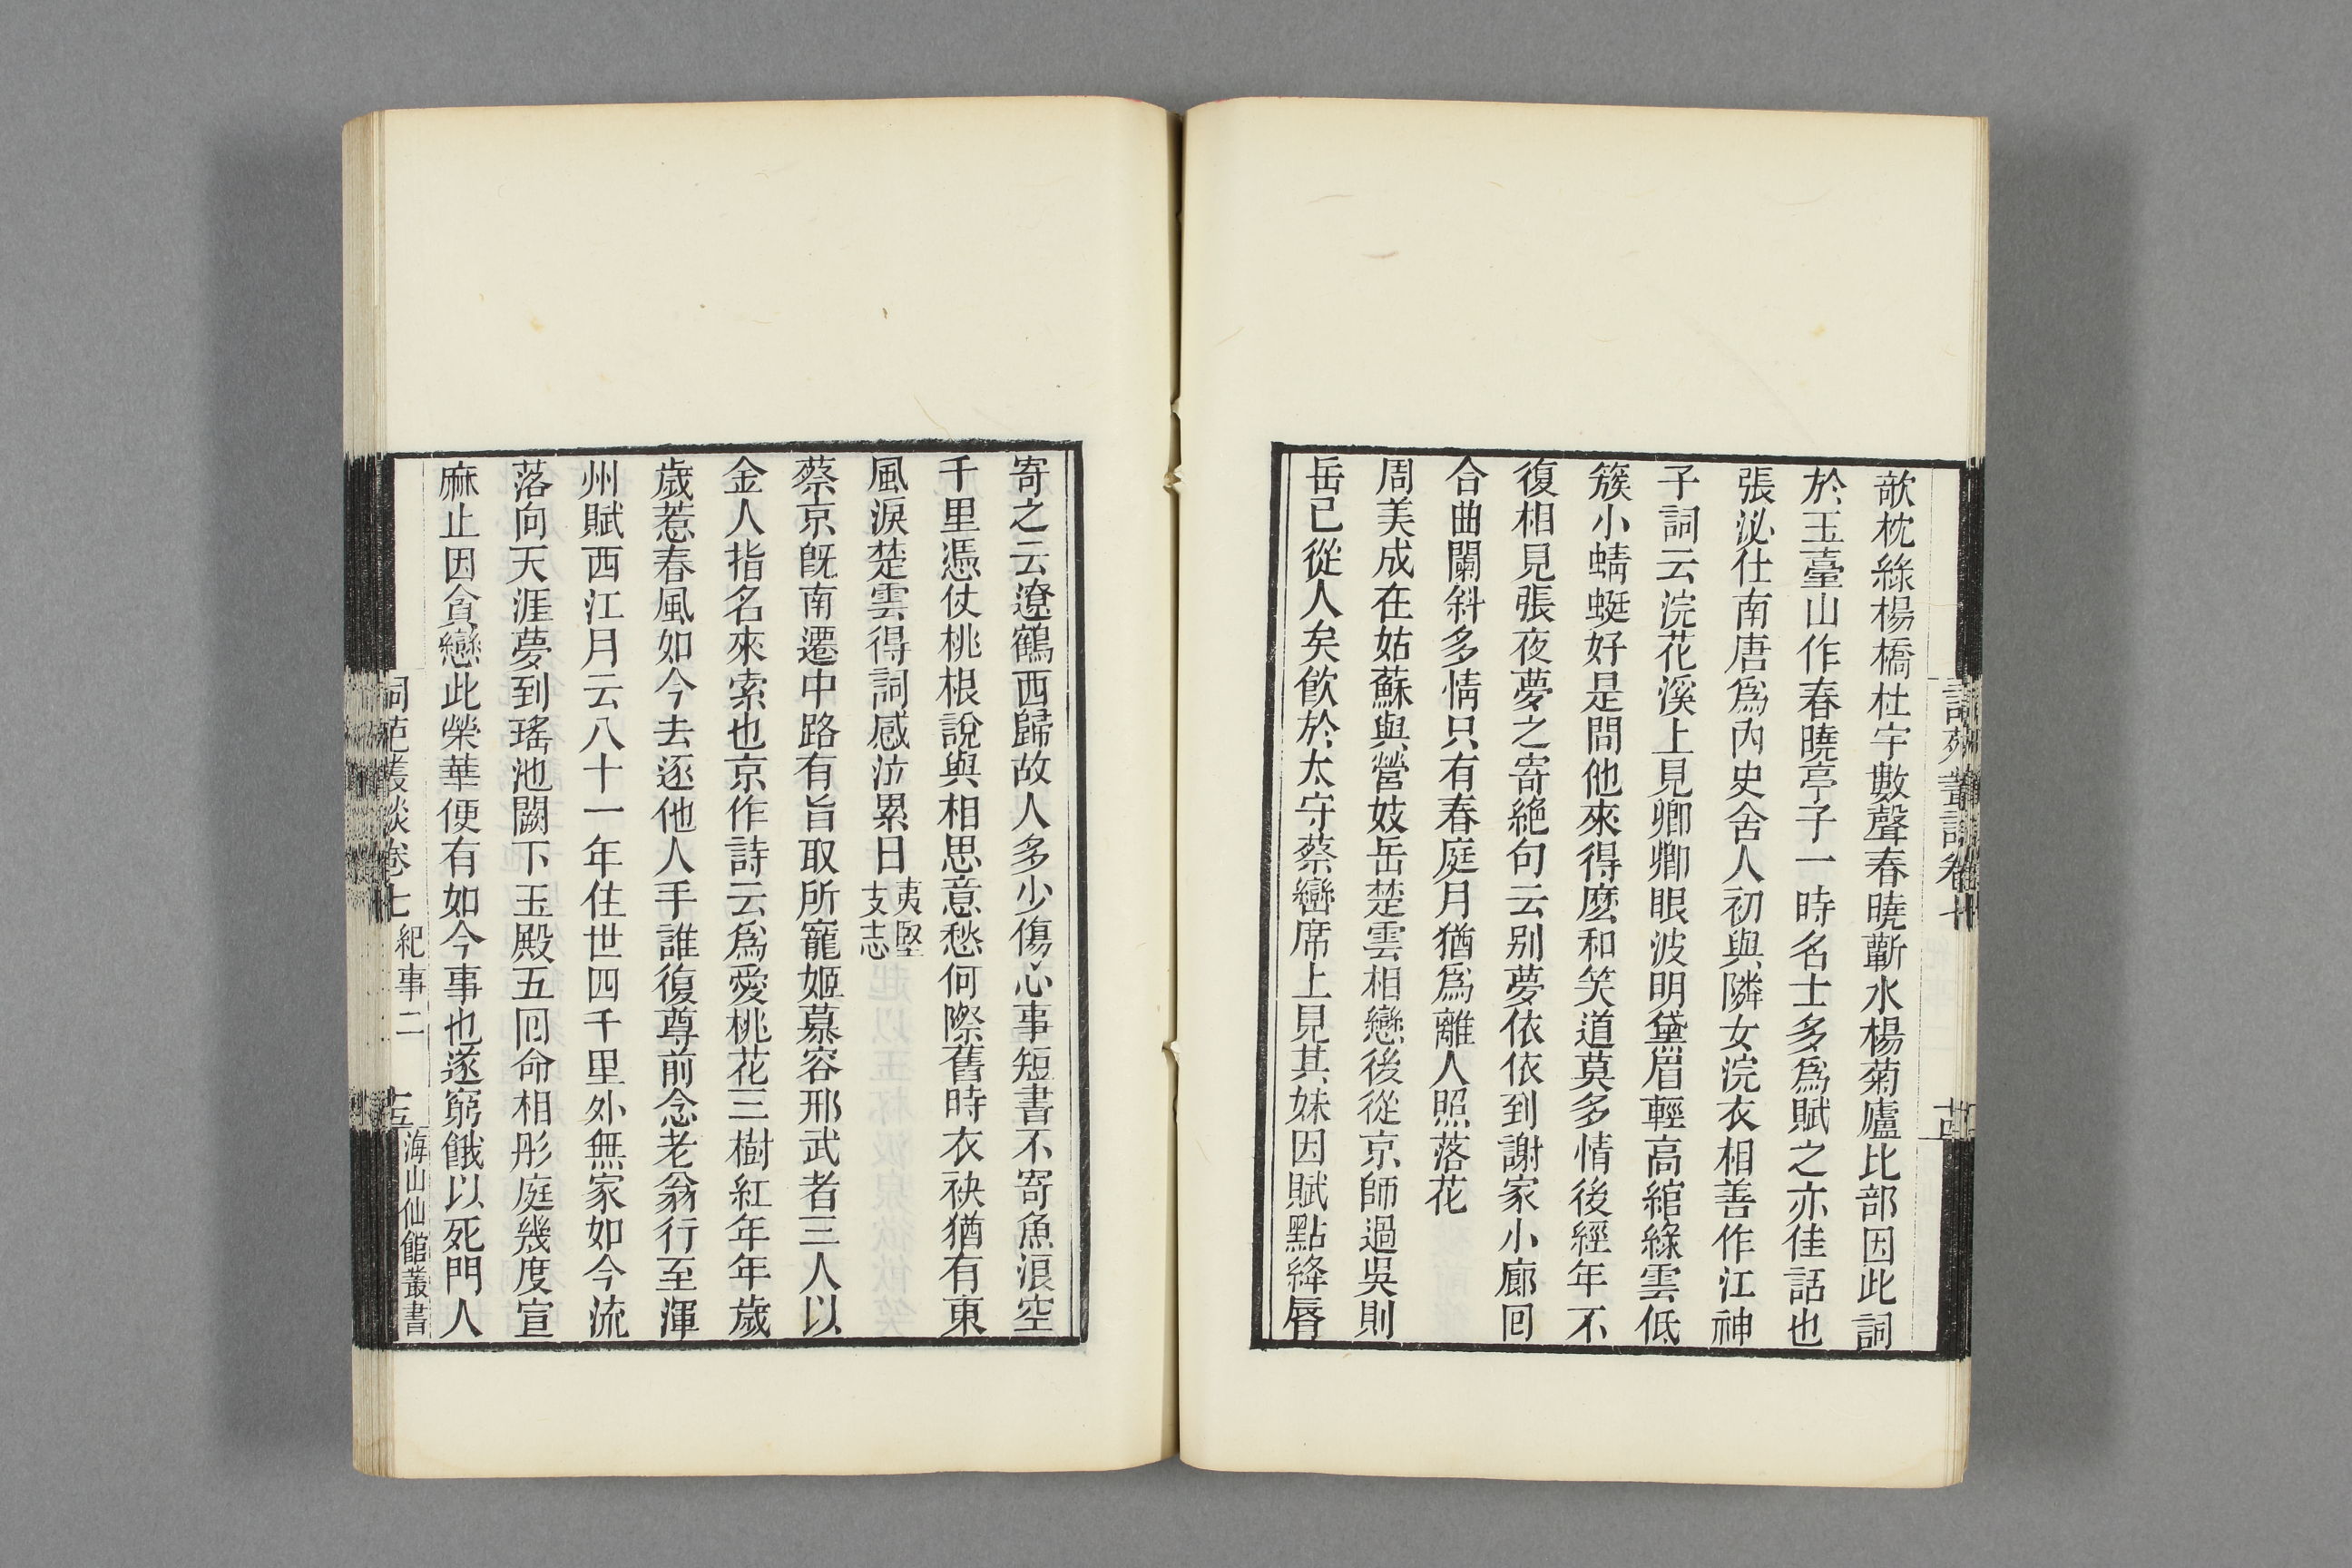 欹枕綠楊橋杜宇數聲春曉蘄水楊菊廬比部因此詞
於玉臺山作春曉亭子一時名士多爲賦之亦佳話也
張泌仕南唐爲內史舍人初與隣女浣衣相善作江神
子詞云浣花溪上見卿卿眼波明黛眉輕高綰綠雲低
簇小蜻蜓好是問他來得麽和笑道莫多情後經年不
復相見張夜夢之寄絶句云別夢依依到謝家小廊回
合曲闌斜多情只有春庭月猶爲離人照落花
周美成在姑蘇與營妓岳楚雲相戀後從京師過吳則
岳已從人矣飮於太守蔡巒席上見其妹因賦點絳唇
寄之云遼鶴西歸故人多少傷心事短書不寄魚浪空
千里憑仗桃根說與相思意愁何際舊時衣袂猶有東
風淚楚雲得詞感泣累日夷堅
支志
蔡京旣南遷中路有旨取所寵姬慕容邢武者三人以
金人指名來索也京作詩云爲愛桃花三樹紅年年歲
歲惹春風如今去逐他人手誰復尊前念老翁行至潭
州賦西江月云八十一年住世四千里外無家如今流
落向天涯夢到瑤池闕下玉殿五囘命相彤庭幾度宣
麻止因貪戀此榮華便有如今事也遂窮餓以死門人
詞苑叢談卷七 紀事二 十五 海山仙館叢書